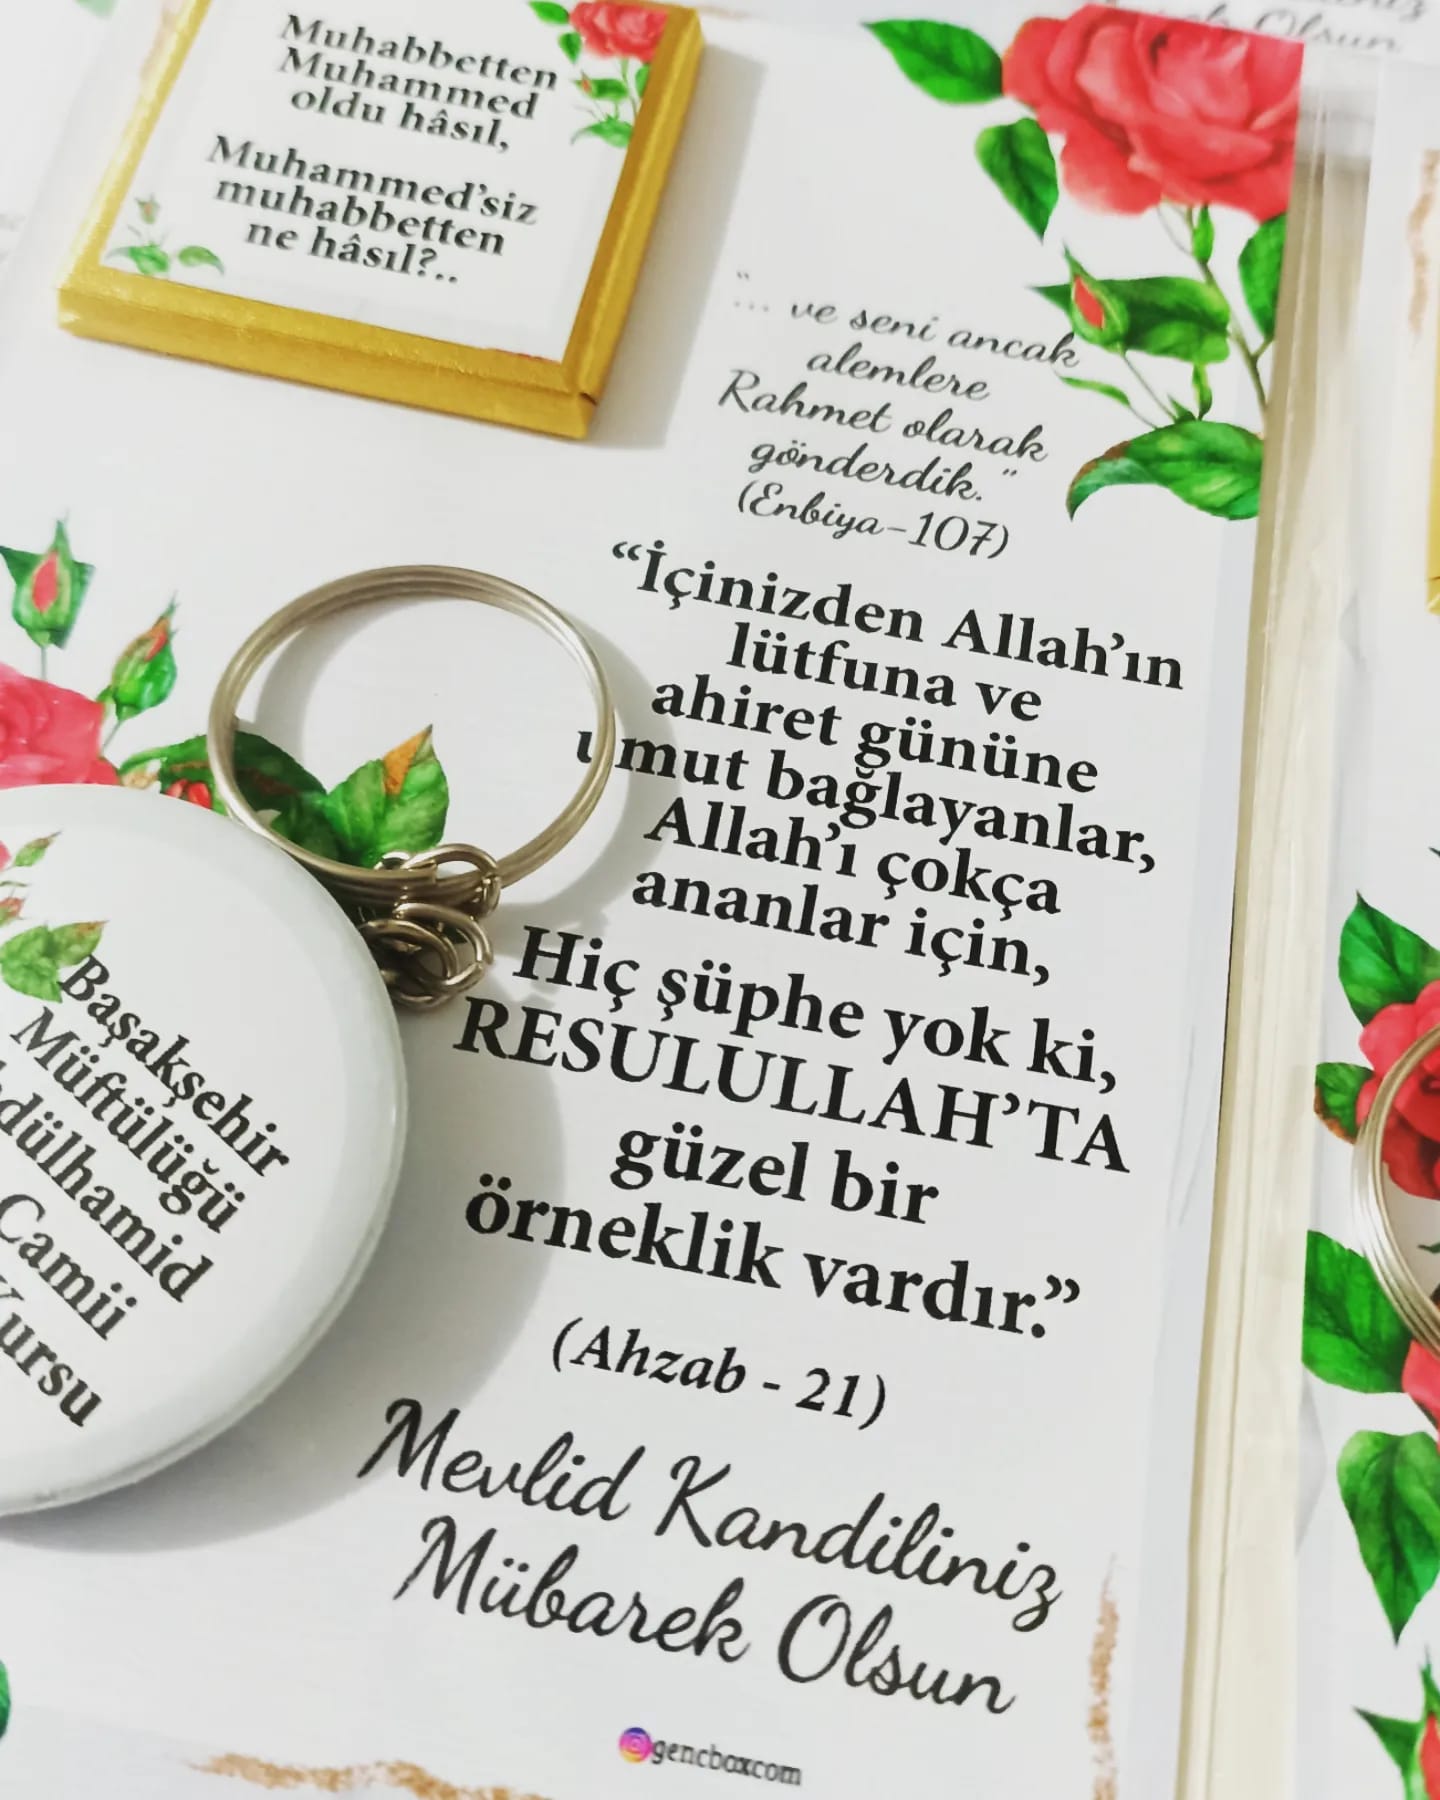 Muhabbetten
Muhammed
oldu hâsıl,
Muhammed'siz
muhabbetten
ne hâsıl?..
Olsun
"... ve seni ancak
alemlere
Rahmet olarak
gönderdik."
(Enbiya-107)
"İçinizden Allah'ın
lütfuna ve
ahiret gününe
umut bağlayanlar,
Allah'ı çokça
ananlar için,
Hiç şüphe yok ki,
RESULULLAH'TA
güzel bir
örneklik vardır."
(Ahzab - 21)
Mevlid Kandiliniz
Mübarek Olsun
gencboxcom
Başakşehir
Müftülüğü
dülhamid
Camii
ursu